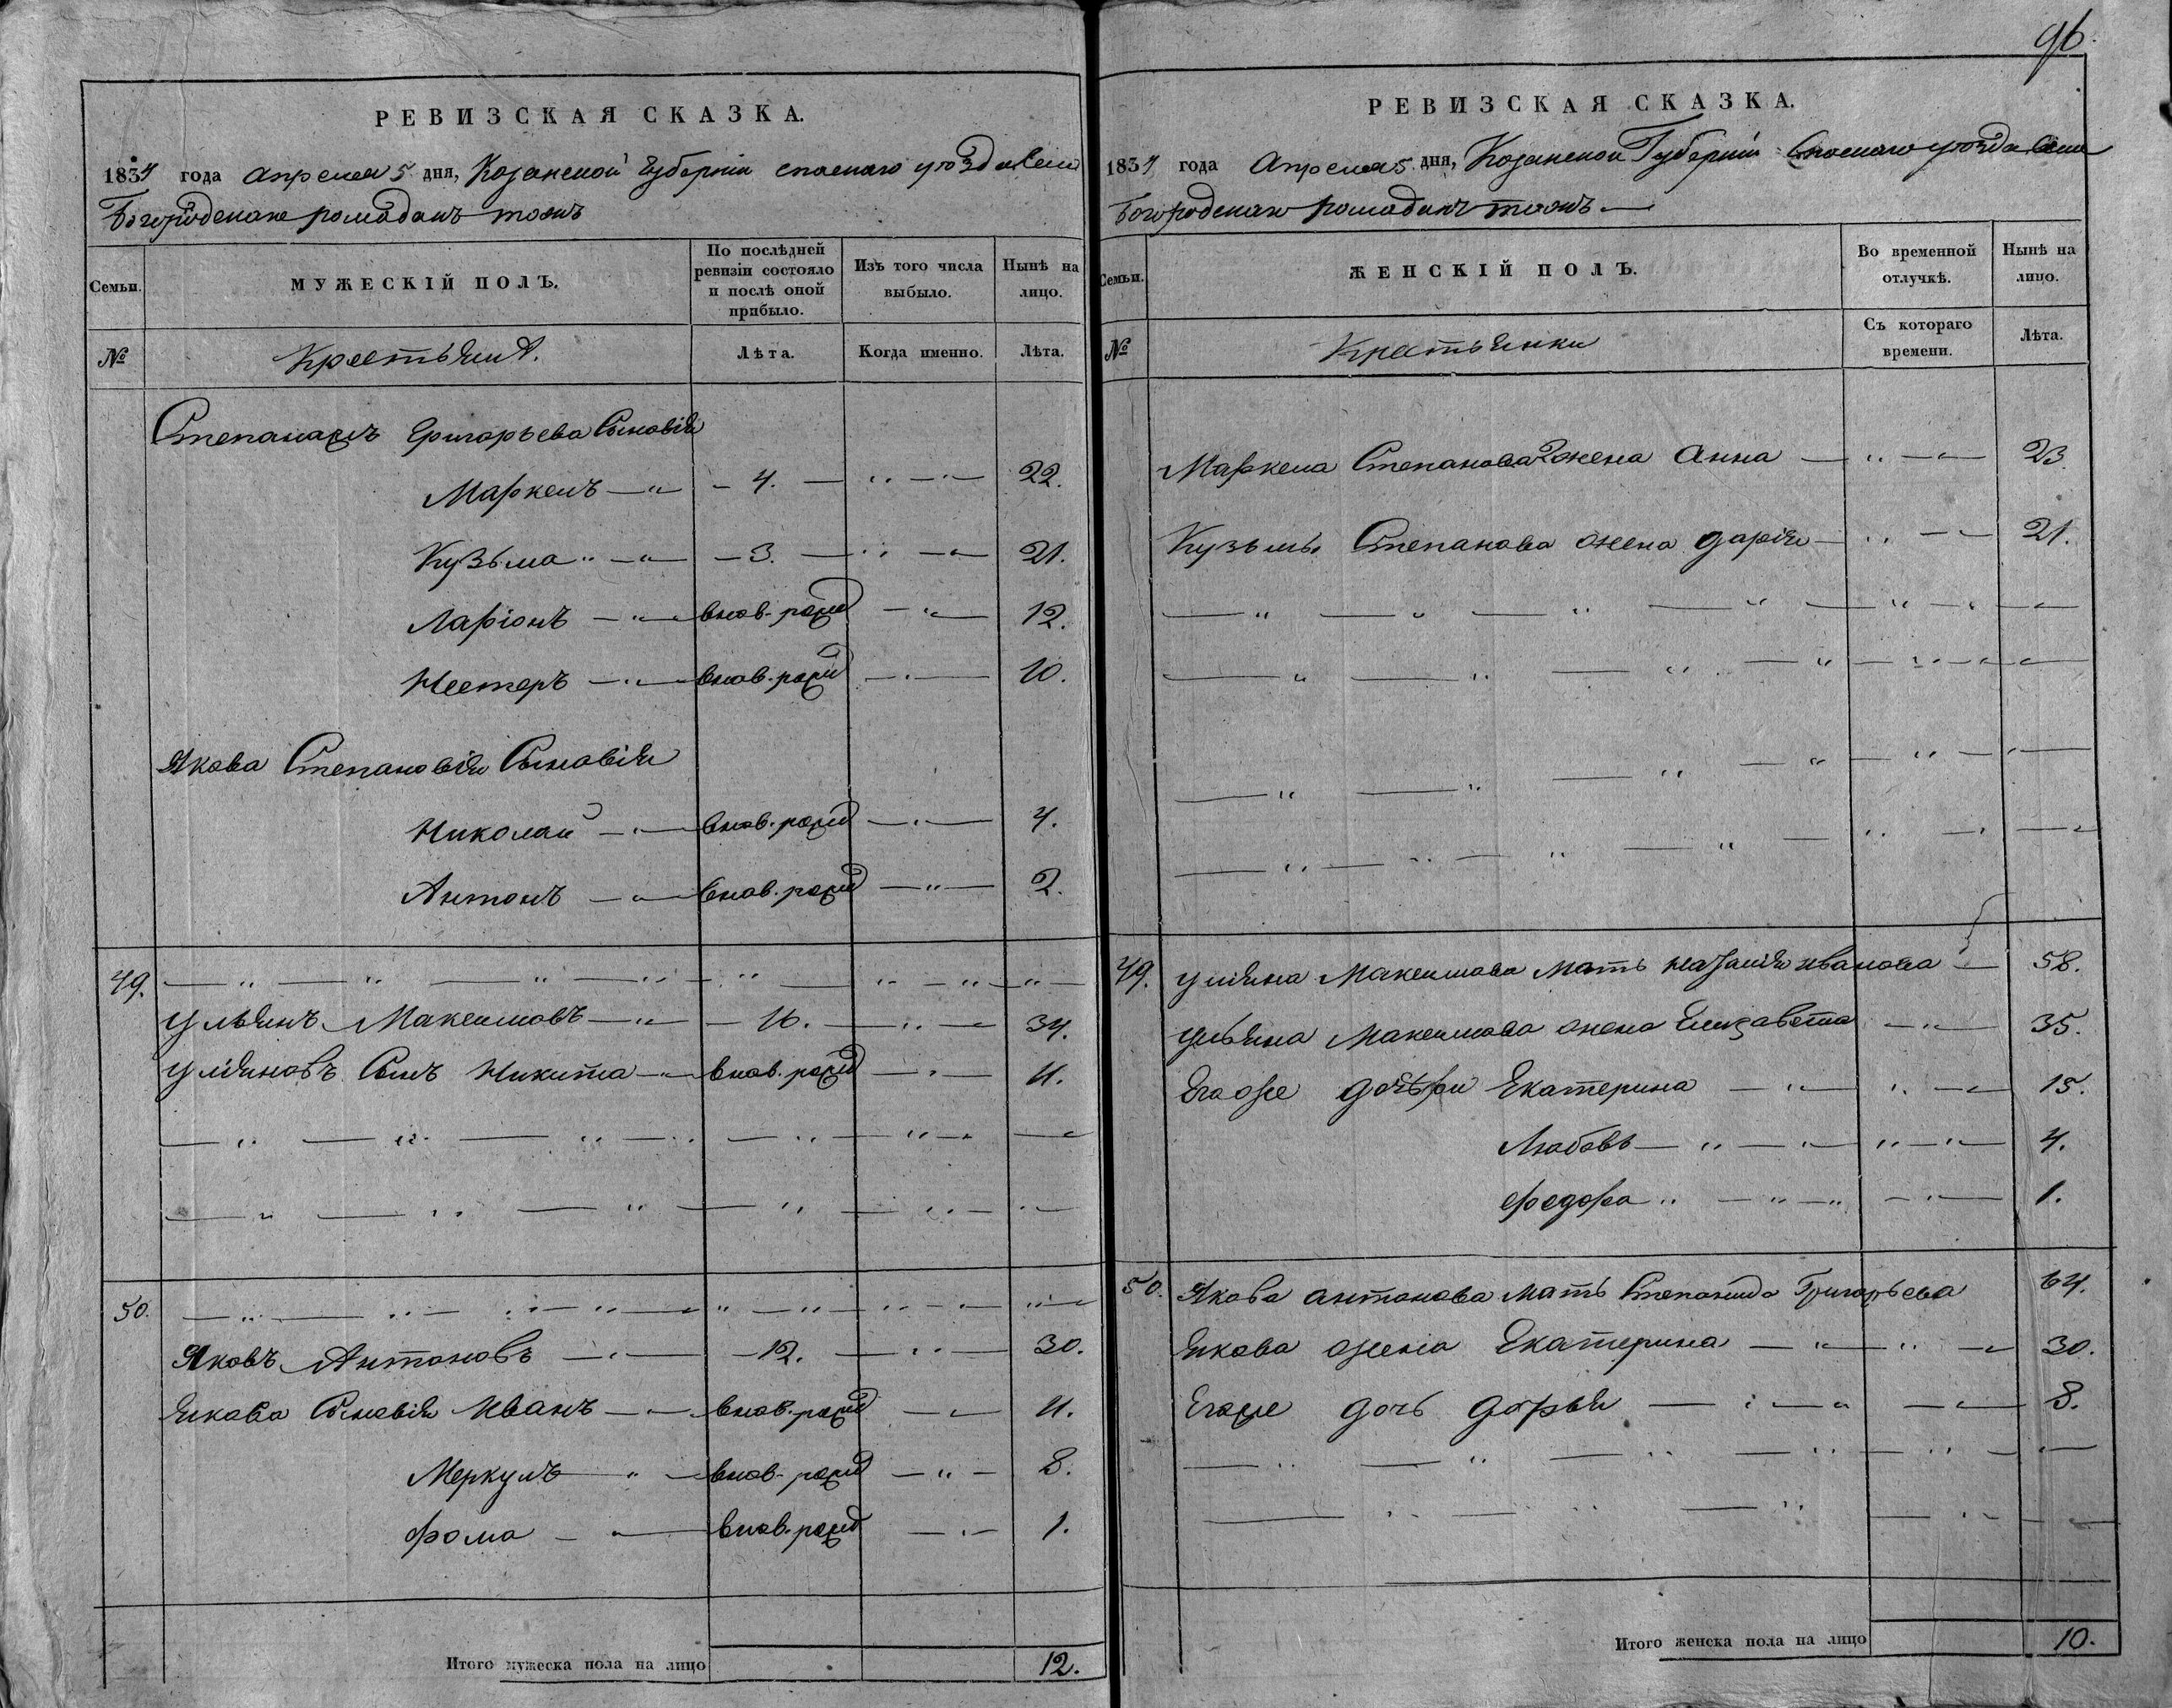 РЕВИЗСКАЯ СКАЗКА.
1834 года Апреля 5 дня, Козанской Губернiи спаскаго уѣзда Села
Богородскаго ромаданъ тожъ
Семьи. МУЖЕСКIЙ ПОЛЪ. По послѣдней ревизiи состояло и послѣ оной прибыло. Изъ того числа выбыло. Нынѣ на лицо.
№ Крестьяня. Лѣта. Когда именно. Лѣта.
Степана Григорьева Сыновiя
Маркелъ 4. 22.
Кузьма 3. 21.
Ларiонъ внов. рожд 12.
Нестеръ внов. рожд 10.
Якова Степановiя Сыновiя
Николай внов. рожд 4.
Антонъ внов. рожд 2.
49.
Ульянъ Максимовъ 16. 34.
Ульяновъ Сынъ Никита внов. рожд 11.
50.
Яковъ Антоновъ 12. 30.
Якова Сыновiя Иванъ внов. рожд 11.
Меркулъ внов. рожд 8.
Фома внов. рожд 1.
Итого мужеска пола на лицо 12.
96.
РЕВИЗСКАЯ СКАЗКА.
1834 года Апреля 5 дня, Козанской Губернiи Спаскаго уѣзда Села
Богородскаго ромаданъ тожъ
Семьи. ЖЕНСКIЙ ПОЛЪ. Во временной отлучкѣ. Нынѣ на лицо.
№ Крестьянки Съ котораго времени. Лѣта.
Маркела Степанова жена Анна 23
Кузьмы Степанова жена Дарiя 21.
49. Ульяна Максимова Мать Иванова 58.
Ульяна Максимова жена Елизавета 35.
Егоже дочери Екатерина 15.
Любовь 4.
Федора 1.
50. Якова Антонова Мать Степанида Григорьева 64.
Якова жена Екатерина 30.
Егоже дочь Дарья 8.
Итого женска пола на лицо 10.